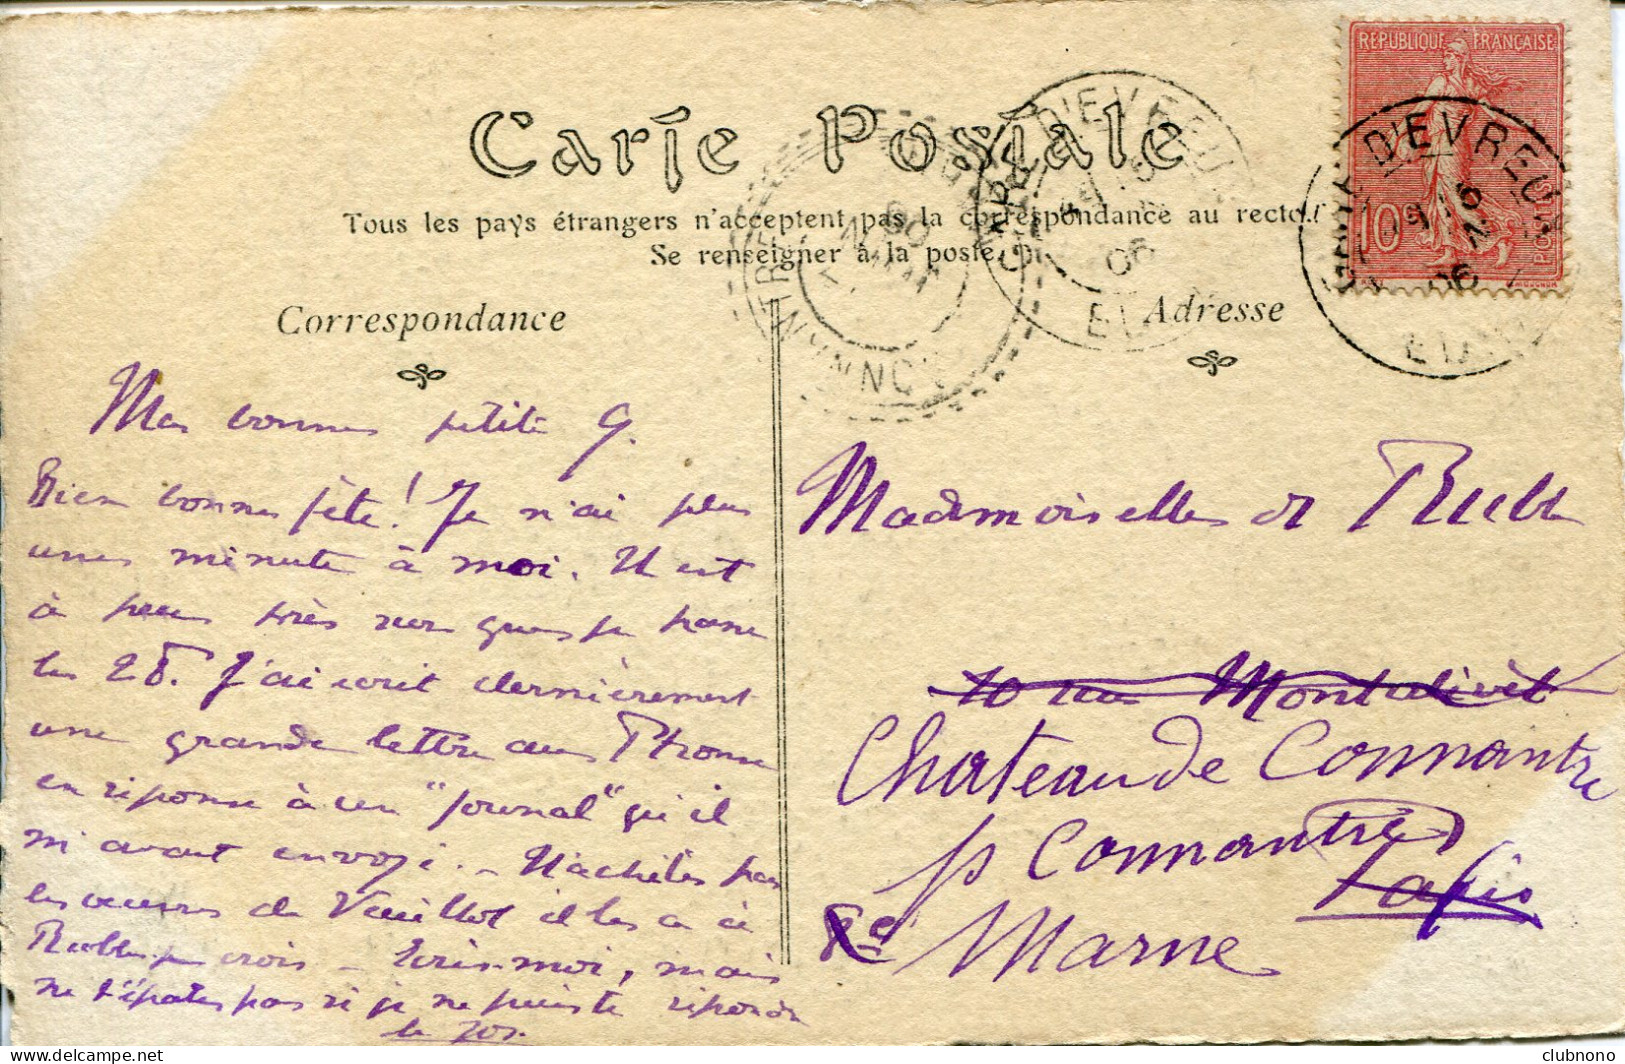 Carte Postale
Tous les pays étrangers n'acceptent pas la correspondance au recto.
Se renseigner à la poste
Correspondance
Adresse
REPUBLIQUE FRANÇAISE
10
POSTES
GARE D'EVREUX
06
GARE D'EVREUX
06
Ma bonne petite G.
Bien bonne fête! Je n'ai pas
une minute à moi. Il est
à peu près sûr que je passe
le 28. J'ai écrit dernièrement
une grande lettre au
en réponse à un "journal" qu'il
m'avait envoyé. - N'achète pas
les œuvres de Veuillot il les a à
je crois - Écris-moi, mais
ne t'épate pas si je ne puis te répondre
Mademoiselle de
10 rue Montalivet
Chateau de Connantre
p Connantre
Paris
Marne
clubnono
delcampe.net